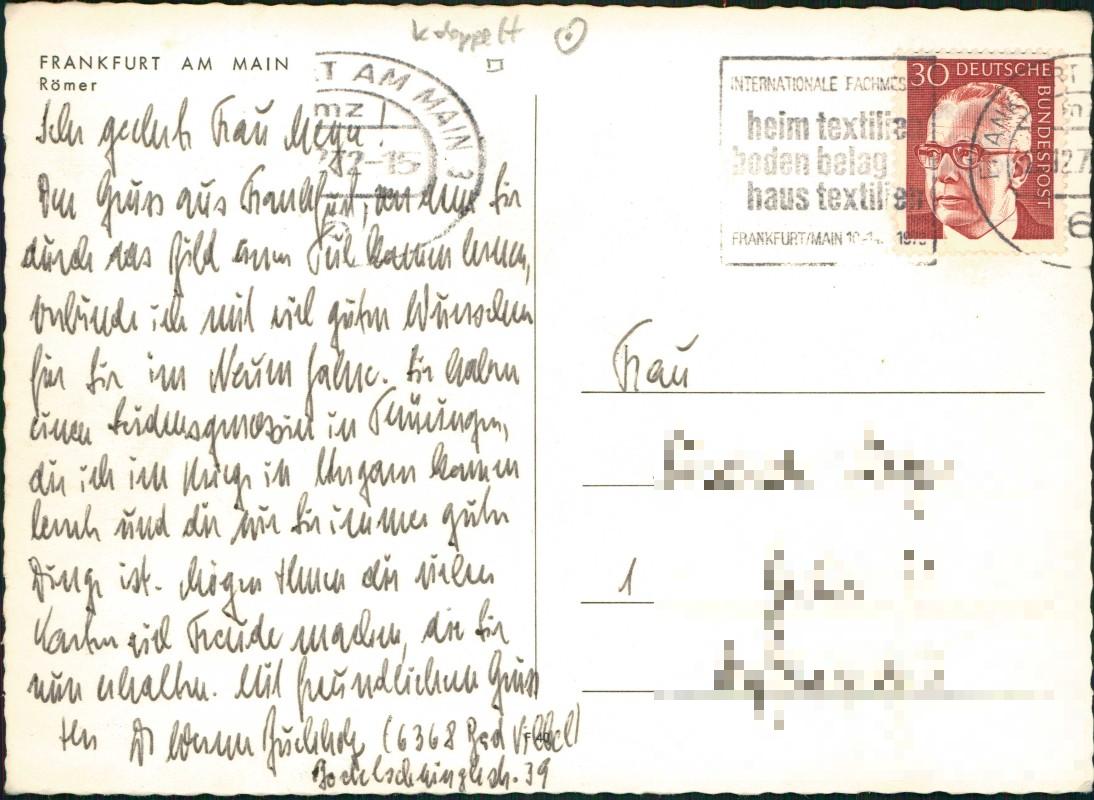 k doppelt
FRANKFURT AM MAIN
Römer
T AM MAIN 3
mz
72-15
INTERNATIONALE FACHMES
heim textilie
boden belag
haus textilien
FRANKFURT/MAIN 10.-14. 197
30 DEUTSCHE
BUNDESPOST
FRANKF RT
12.7
6
Sehr geehrte Frau
Den Gruss aus Frankfurt, von dem Sie
durch das Bild einen Teil kennen lernen,
verbinde ich mit viel guten Wünschen
für Sie im Neuen Jahre. Sie haben
einen Leidensgenossin in Thüringen,
die ich im Kriege in Ungarn kennen
lernte und die wie Sie immer guter
Dinge ist. Mögen Ihnen die vielen
Karten viel Freude machen, die Sie
nun erhalten. Mit freundlichem Gruss
Ihr Dr Werner Buchholz (6368 Bad Vilbel)
Bodelschwinghstr. 39
F 40
Frau
1